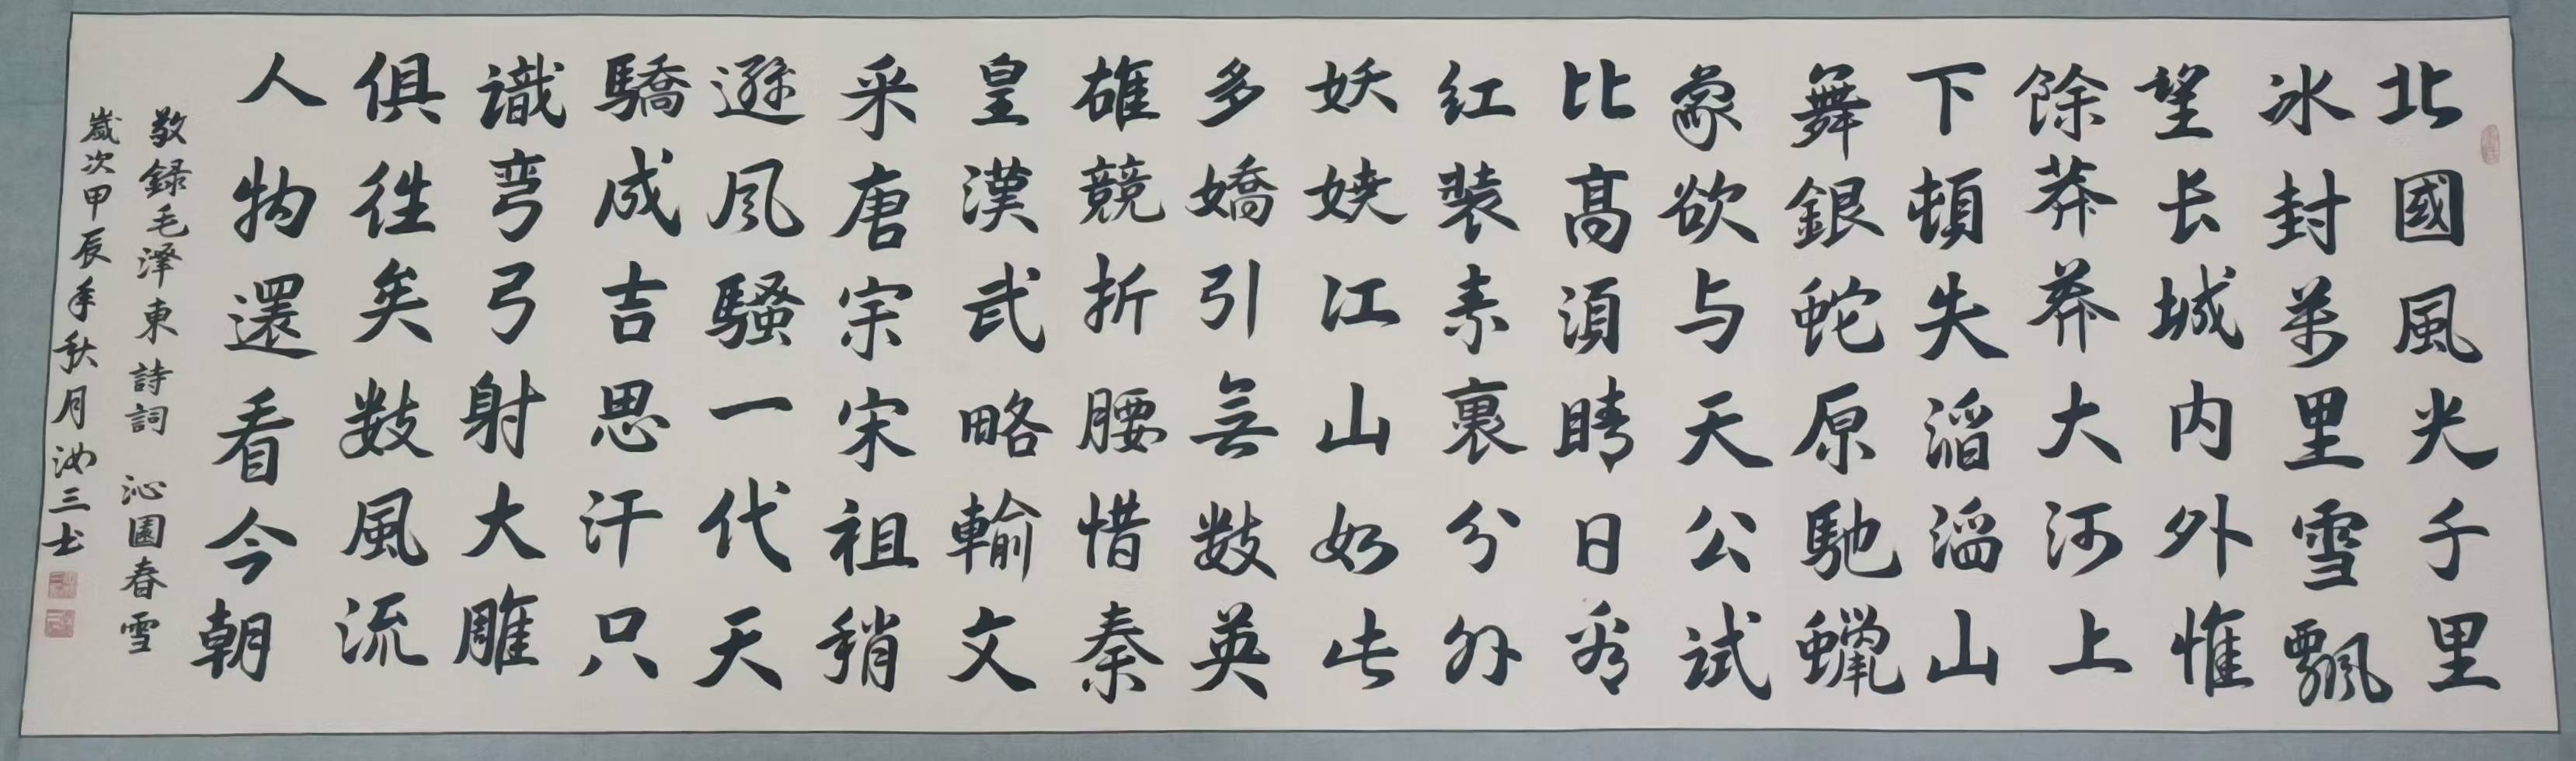 北國風光千里
冰封萬里雪飄
望长城内外惟
餘莽莽大河上
下頓失滔滔山
舞銀蛇原馳蠟
象欲与天公試
比高須晴日看
红裝素裹分外
妖娆江山如此
多嬌引無數英
雄競折腰惜秦
皇漢武略輸文
采唐宗宋祖稍
遜风騷一代天
驕成吉思汗只
識弯弓射大雕
俱往矣数風流
人物還看今朝
敬録毛澤東詩詞 沁園春雪
歲次甲辰年秋月汝三士